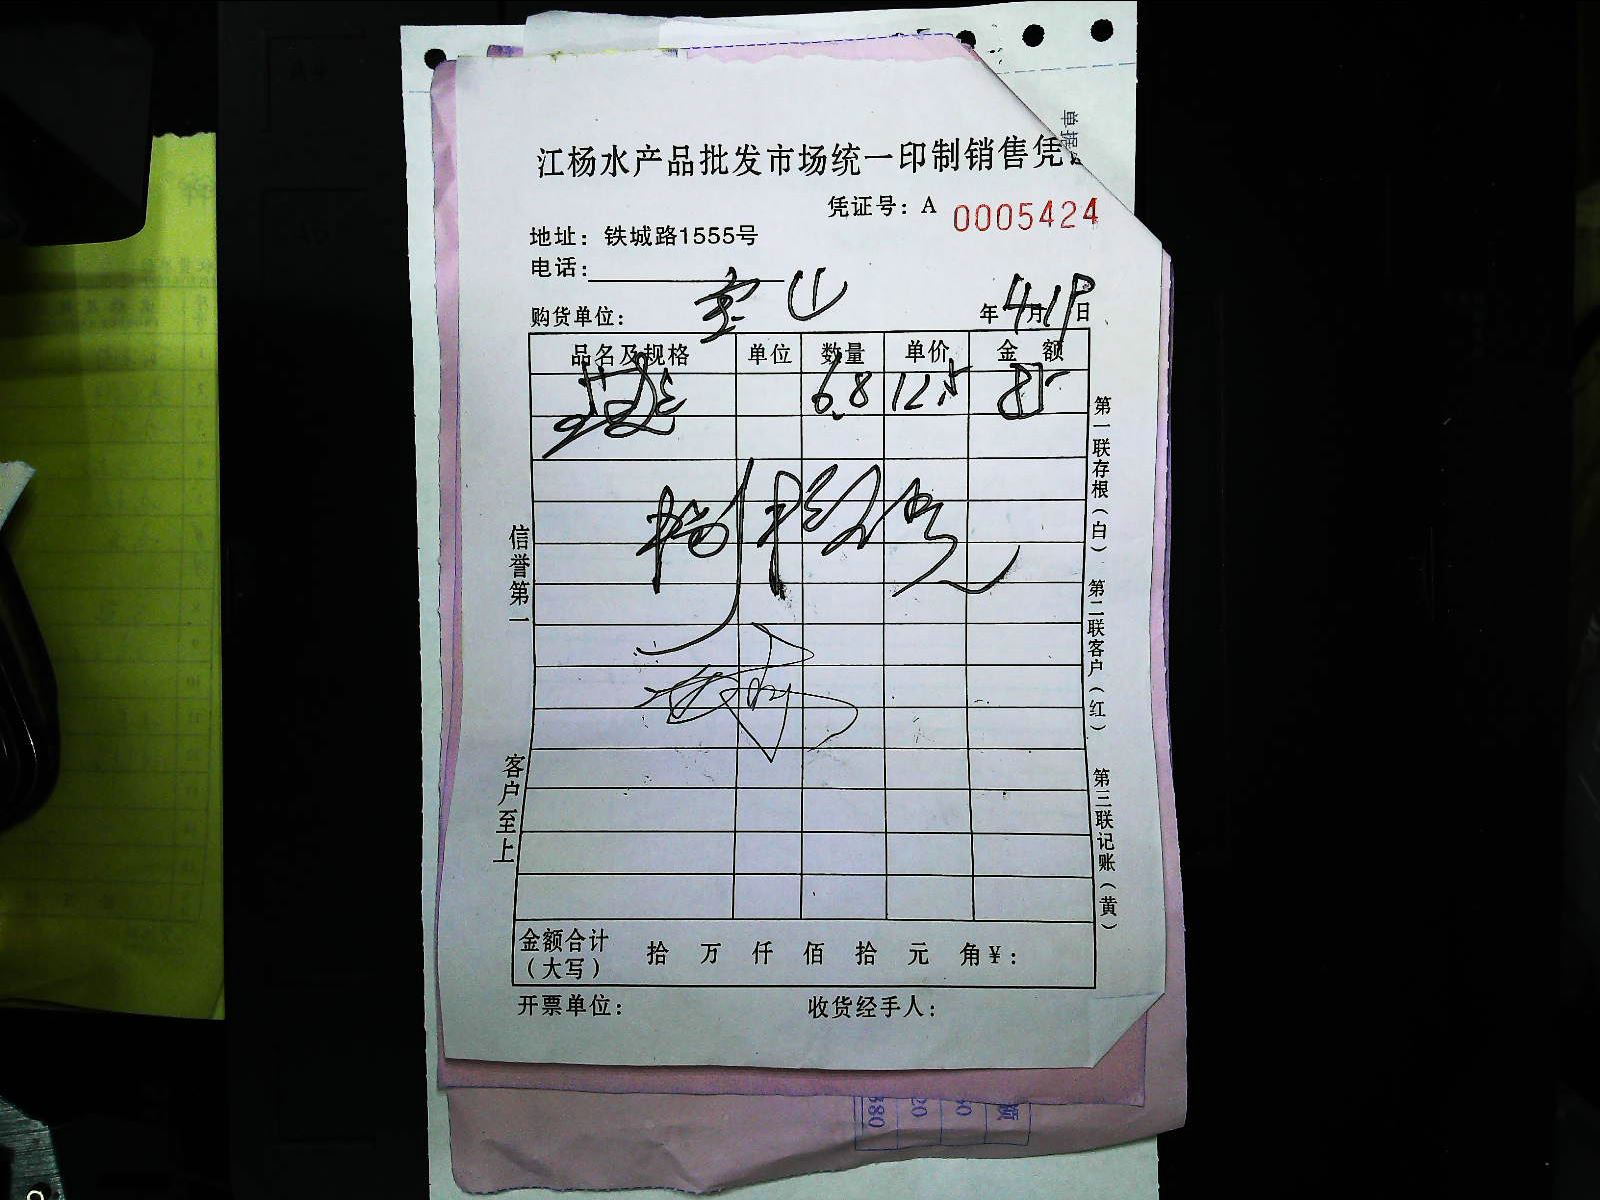 江杨水产品批发市场统一印制销售凭
单据
凭证号：A 0005424
地址：铁城路1555号
电话：
购货单位： 宝山 年4月19日
品名及规格 单位 数量 单价 金额
6.8 12.5 85
信誉第一
客户至上
第一联存根（白）
第二联客户（红）
第三联记账（黄）
金额合计（大写） 拾 万 仟 佰 拾 元 角¥：
开票单位： 收货经手人：
额